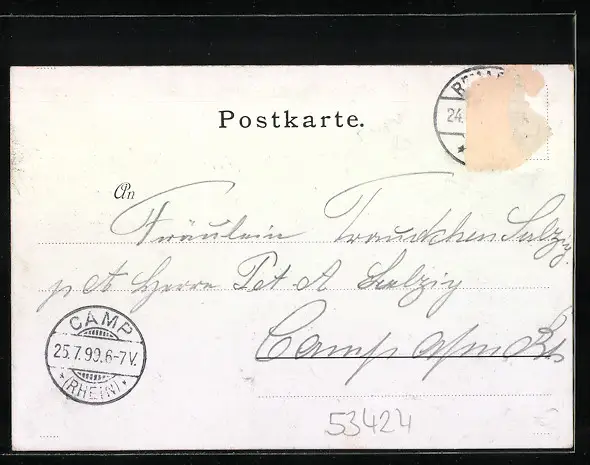 Postkarte.
24.
An
Fräulein Traudchen Salzig
p A Herrn Pet A Salzig
Camp a/m Rh
CAMP
25.7.99.6-7V.
(RHEIN)
53424